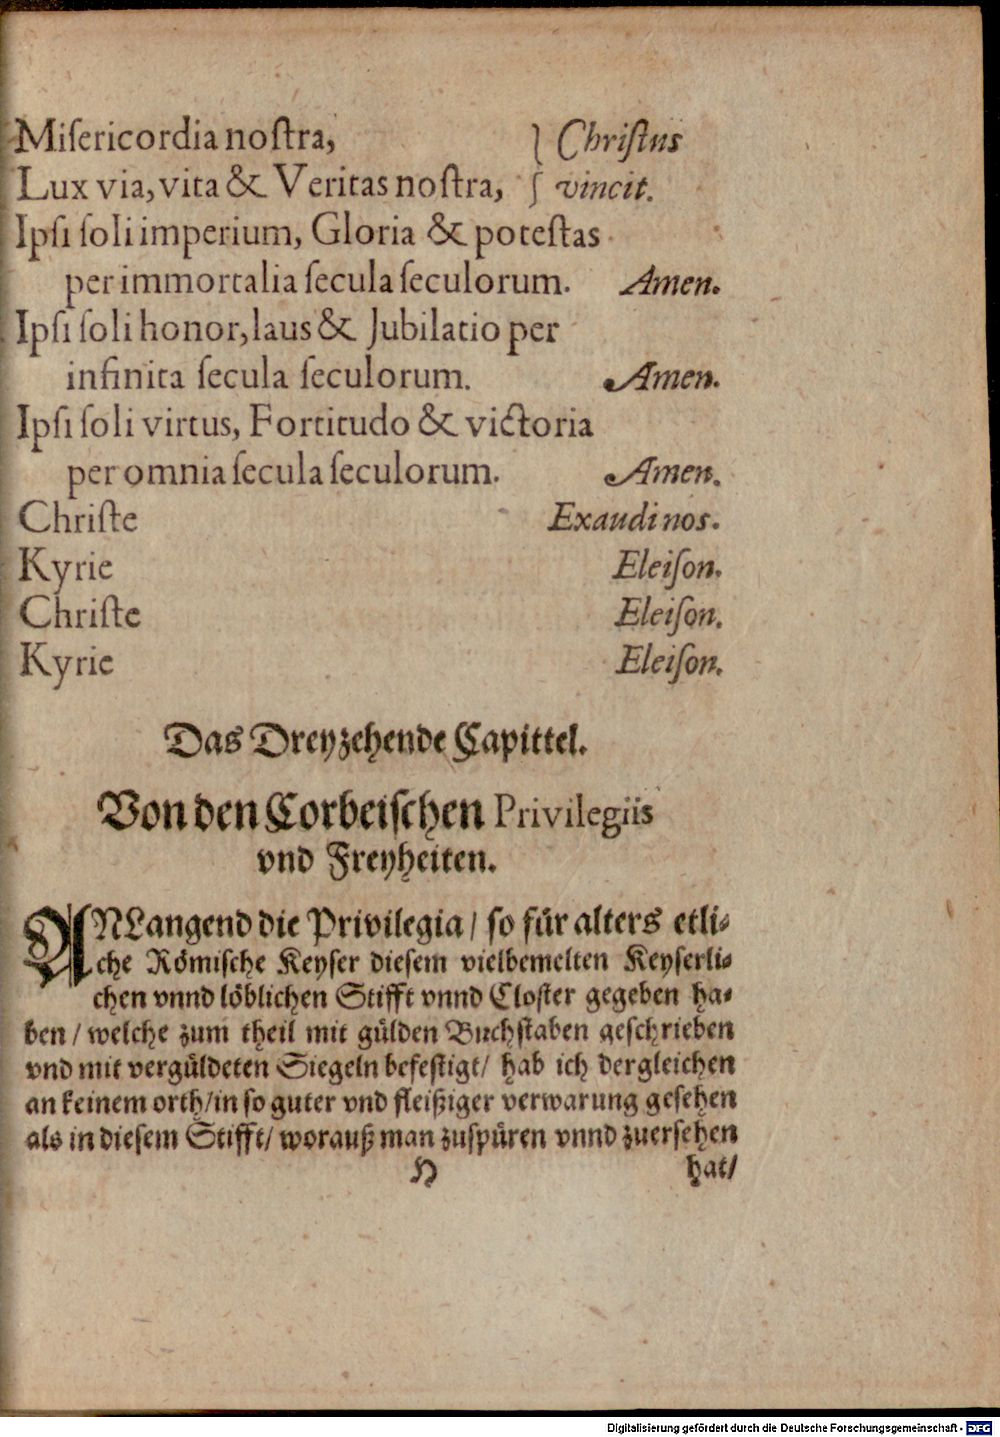 Miſericordia noſtra, } Chriſtus
Lux via, vita & Veritas noſtra, vincit.
Ipſi ſoli imperium, Gloria & poteſtas
per immortalia ſecula ſeculorum. Amen.
Ipſi ſoli honor, laus & Jubilatio per
infinita ſecula ſeculorum. Amen.
Ipſi ſoli virtus, Fortitudo & victoria
per omnia ſecula ſeculorum. Amen.
Chriſte Exaudi nos.
Kyrie Eleiſon.
Chriſte Eleiſon.
Kyrie Eleiſon.
Das Dreyzehende Capittel.
Von den Corbeiſchen Privilegiis
vnd Freyheiten.
ANLangend die Privilegia / ſo fuͤr alters etli-
che Roͤmiſche Keyſer dieſem vielbemelten Keyſerli-
chen vnnd loͤblichen Stifft vnnd Cloſter gegeben ha-
ben / welche zum theil mit guͤlden Buchſtaben geſchrieben
vnd mit verguͤldeten Siegeln befeſtigt / hab ich dergleichen
an keinem orth / in ſo guter vnd fleißiger verwarung geſehen
als in dieſem Stifft / worauß man zuſpuͤren vnnd zuerſehen
H hat /
Digitalisierung gefördert durch die Deutsche Forschungsgemeinschaft - DFG